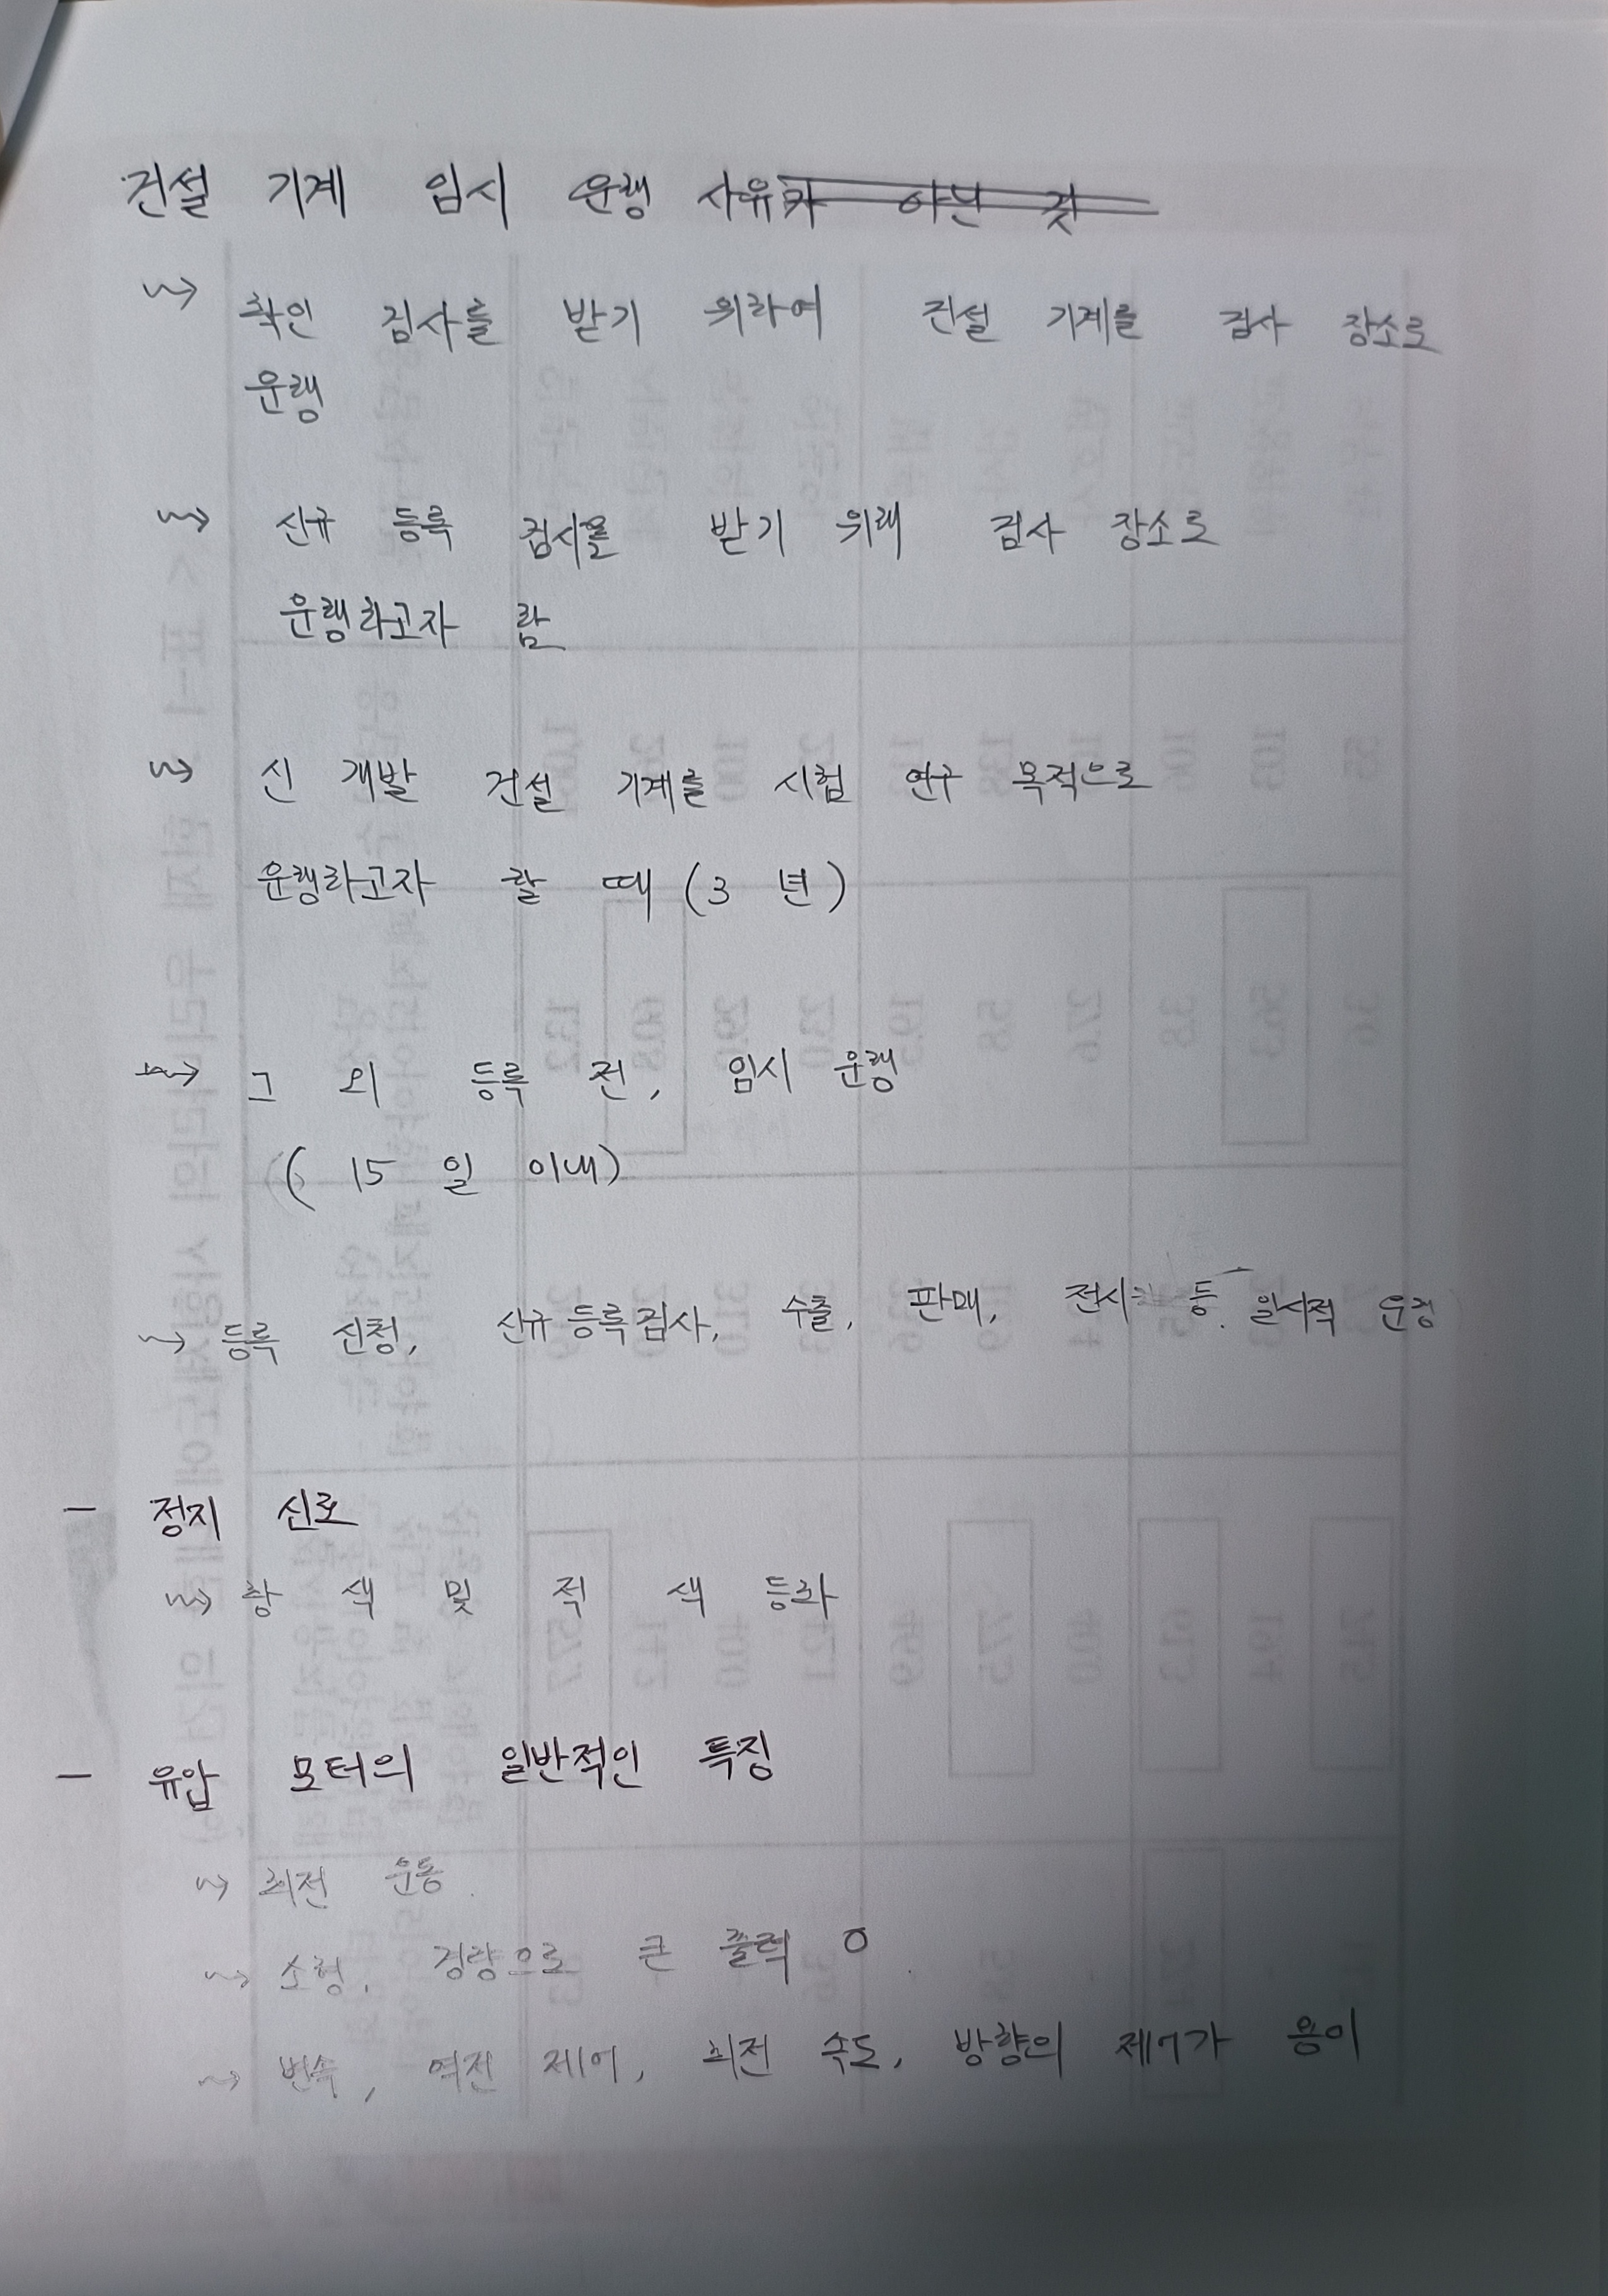 건설 기계 임시 운행 사유가 아닌 것
↝ 확인 검사를 받기 위하여 건설 기계를 검사 장소로
운행
↝ 신규 등록 검사를 받기 위해 검사 장소로
운행하고자 함
↝ 신 개발 건설 기계를 시험 연구 목적으로
운행하고자 할 때 (3 년)
↝ 그 외 등록 전, 임시 운행
( 15 일 이내)
↝ 등록 신청, 신규 등록 검사, 수출, 판매, 전시 등. 일시적 운행
- 정지 신호
↝ 황 색 및 적 색 등화
- 유압 모터의 일반적인 특징
↝ 회전 운동.
↝ 소형, 경량으로 큰 출력 O
↝ 변속, 역전 제어, 회전 속도, 방향의 제어가 용이